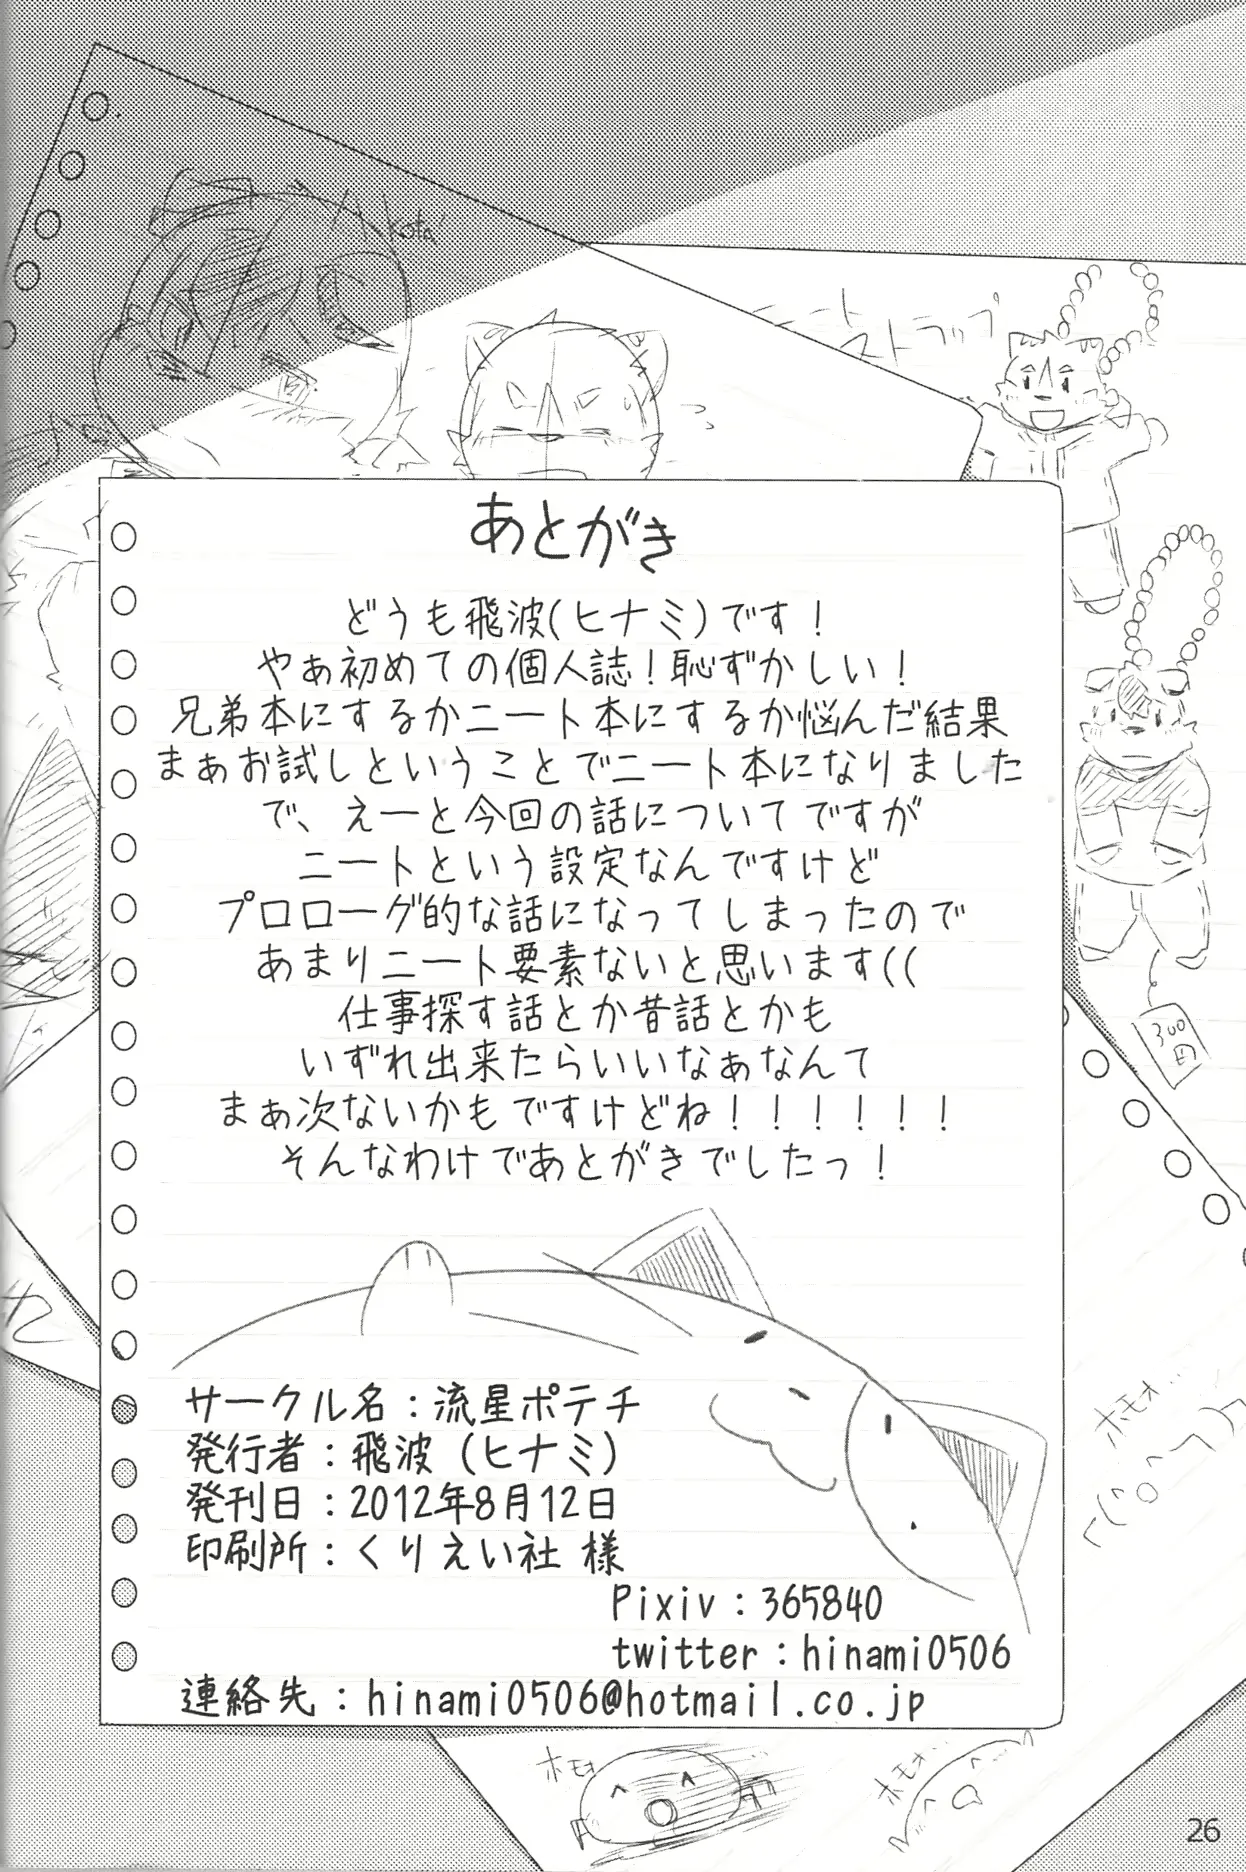 Kota
ストラップ
あとがき
どうも飛波(ヒナミ)です！
やぁ初めての個人誌！恥ずかしい！
兄弟本にするかニート本にするか悩んだ結果
まぁお試しということでニート本になりました
で、えーと今回の話についてですが
ニートという設定なんですけど
プロローグ的な話になってしまったので
あまりニート要素ないと思います((
仕事探す話とか昔話とかも
いずれ出来たらいいなぁなんて
まぁ次ないかもですけどね！！！！！！
そんなわけであとがきでしたっ！
300円
サークル名：流星ポテチ
発行者：飛波（ヒナミ）
発刊日：2012年8月12日
印刷所：くりえい社 様
Pixiv：365840
twitter：hinami0506
連絡先：hinami0506@hotmail.co.jp
ホモォ…
ホモォ
ホモォ…
26